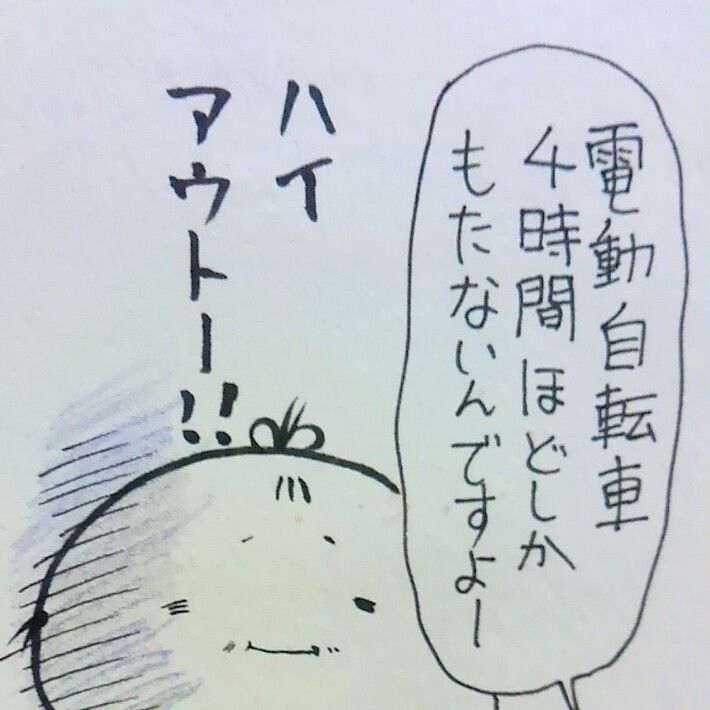 電動自転車
4時間ほどしか
もたないんですよー
ハイ
アウトー!!